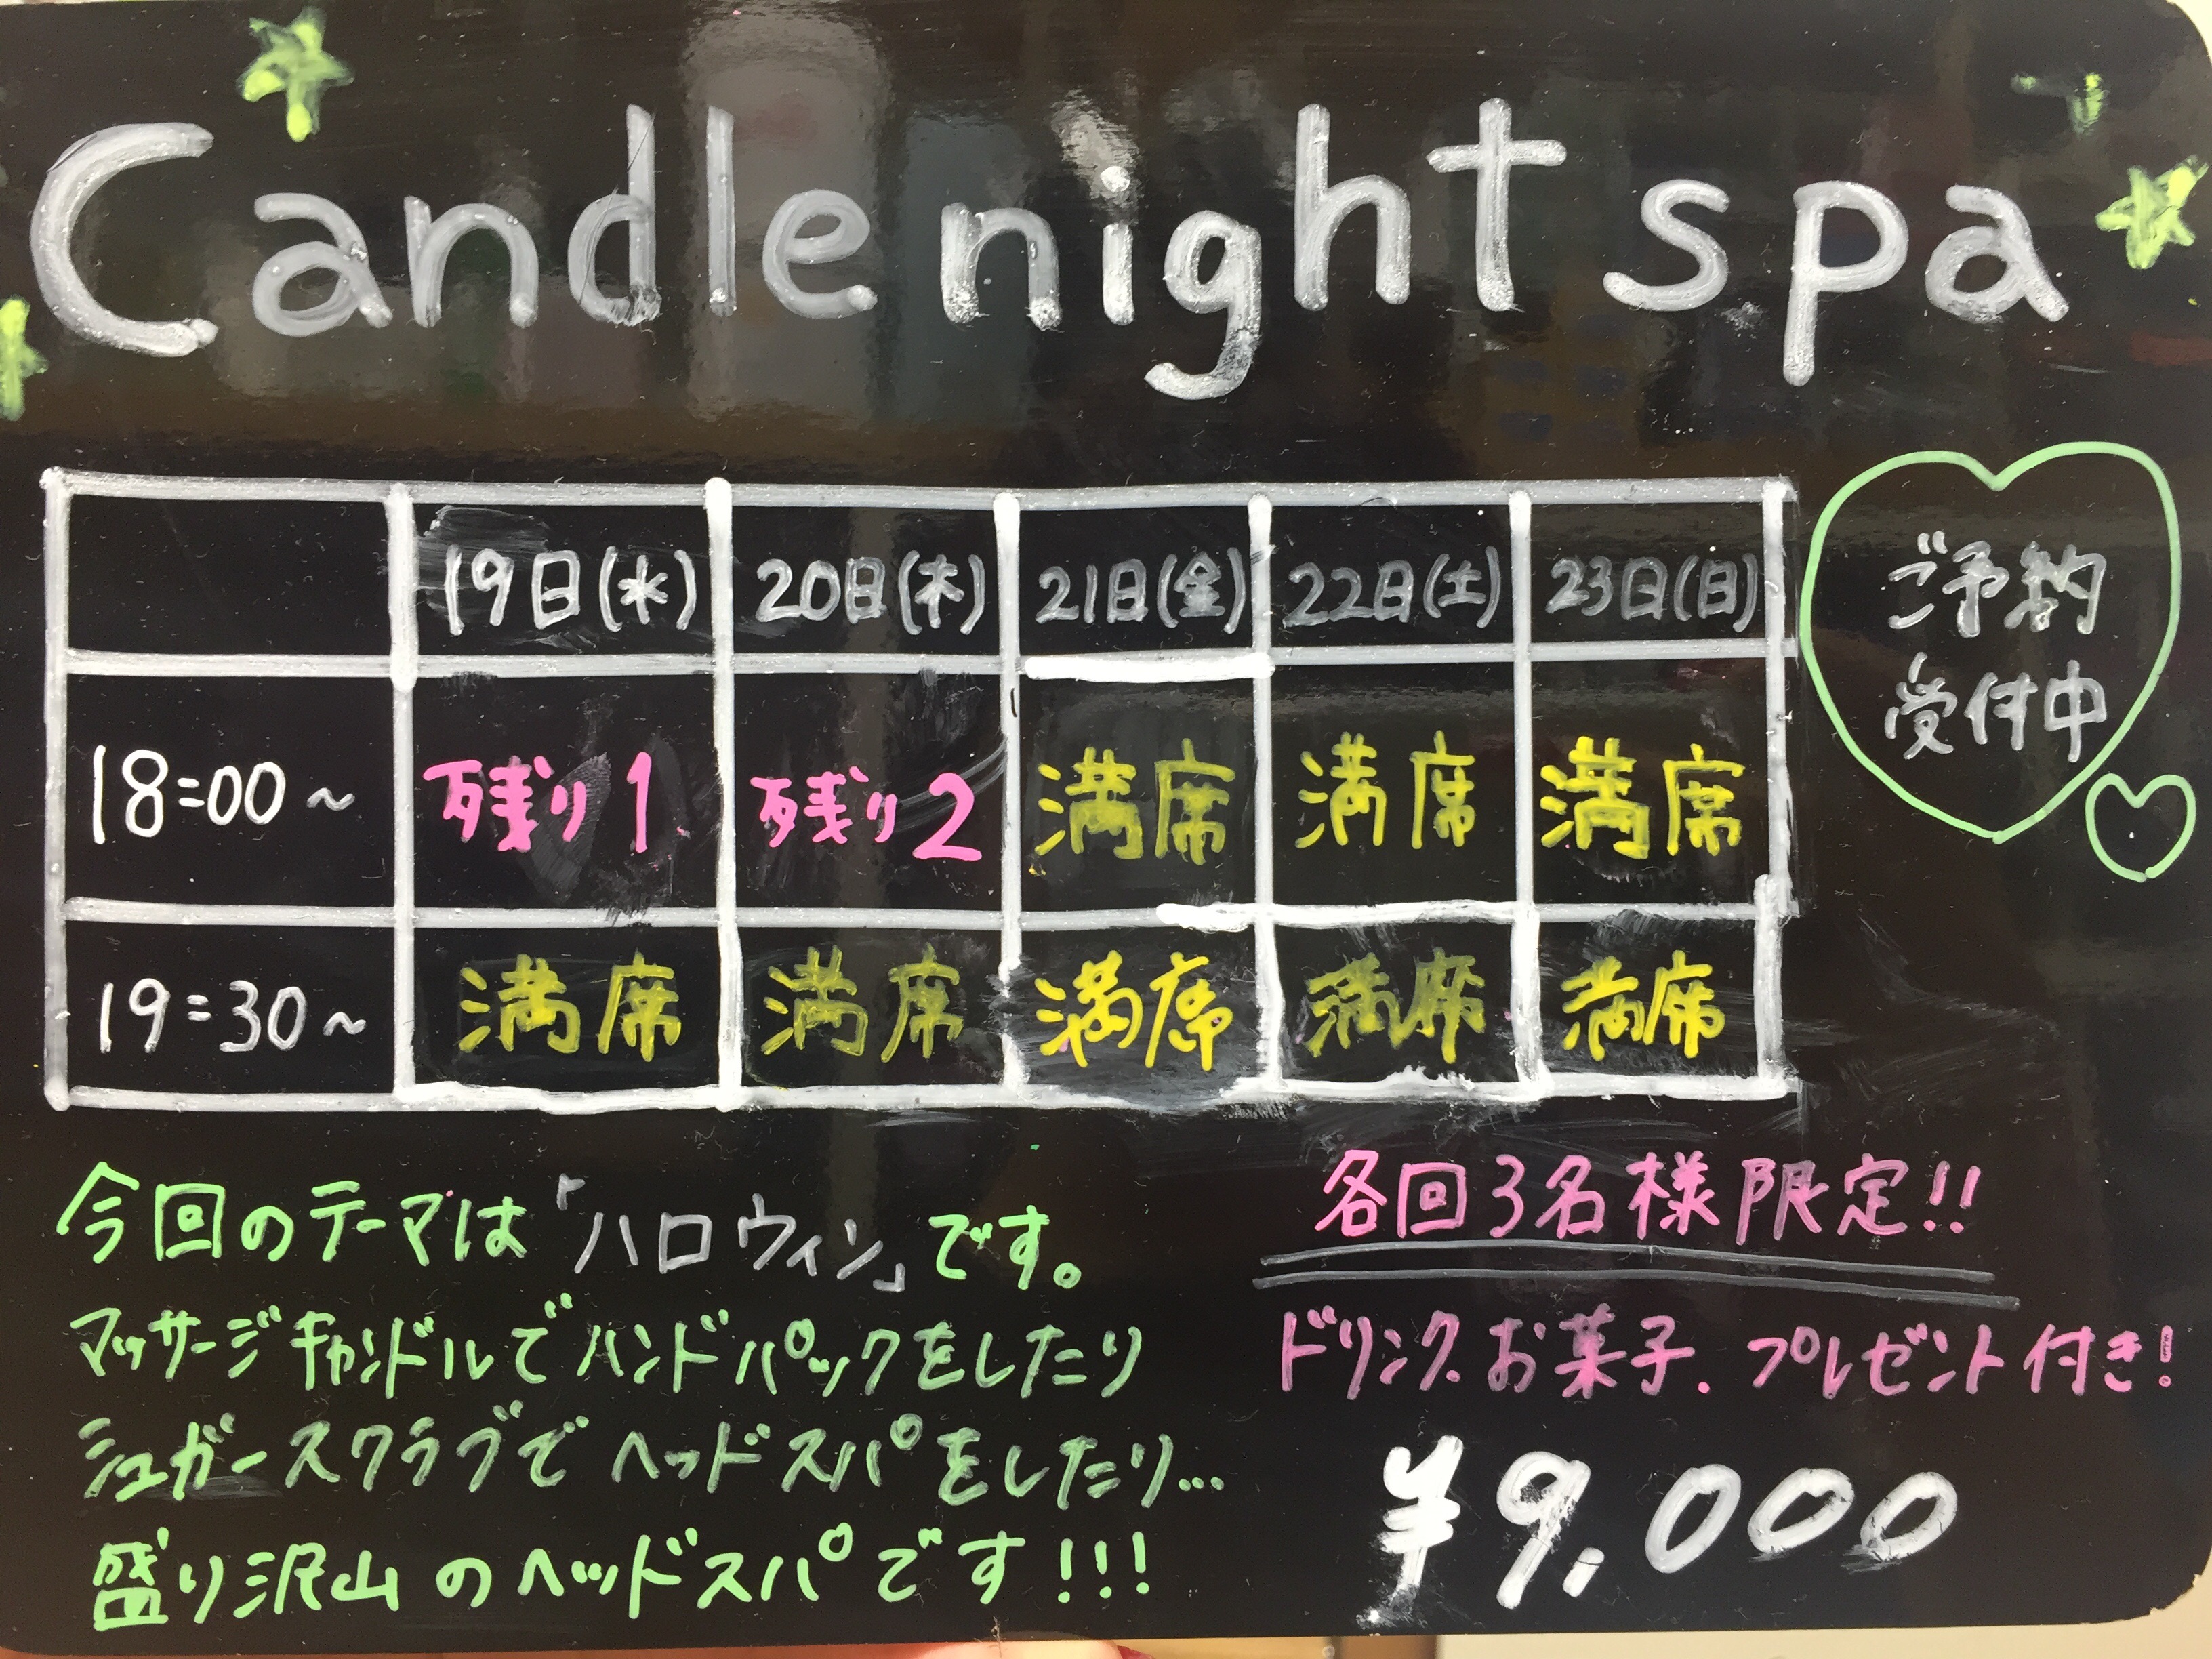 Candle night spa
19日(水) 20日(木) 21日(金) 22日(土) 23日(日)
18:00～ 残り1 残り2 満席 満席 満席
19:30～ 満席 満席 満席 満席 満席
ご予約
受付中
今回のテーマは「ハロウィン」です。
マッサージキャンドルでハンドパックをしたり
シュガースクラブでヘッドスパをしたり…
盛り沢山のヘッドスパです!!!
各回3名様限定!!
ドリンク、お菓子、プレゼント付き!
¥9,000